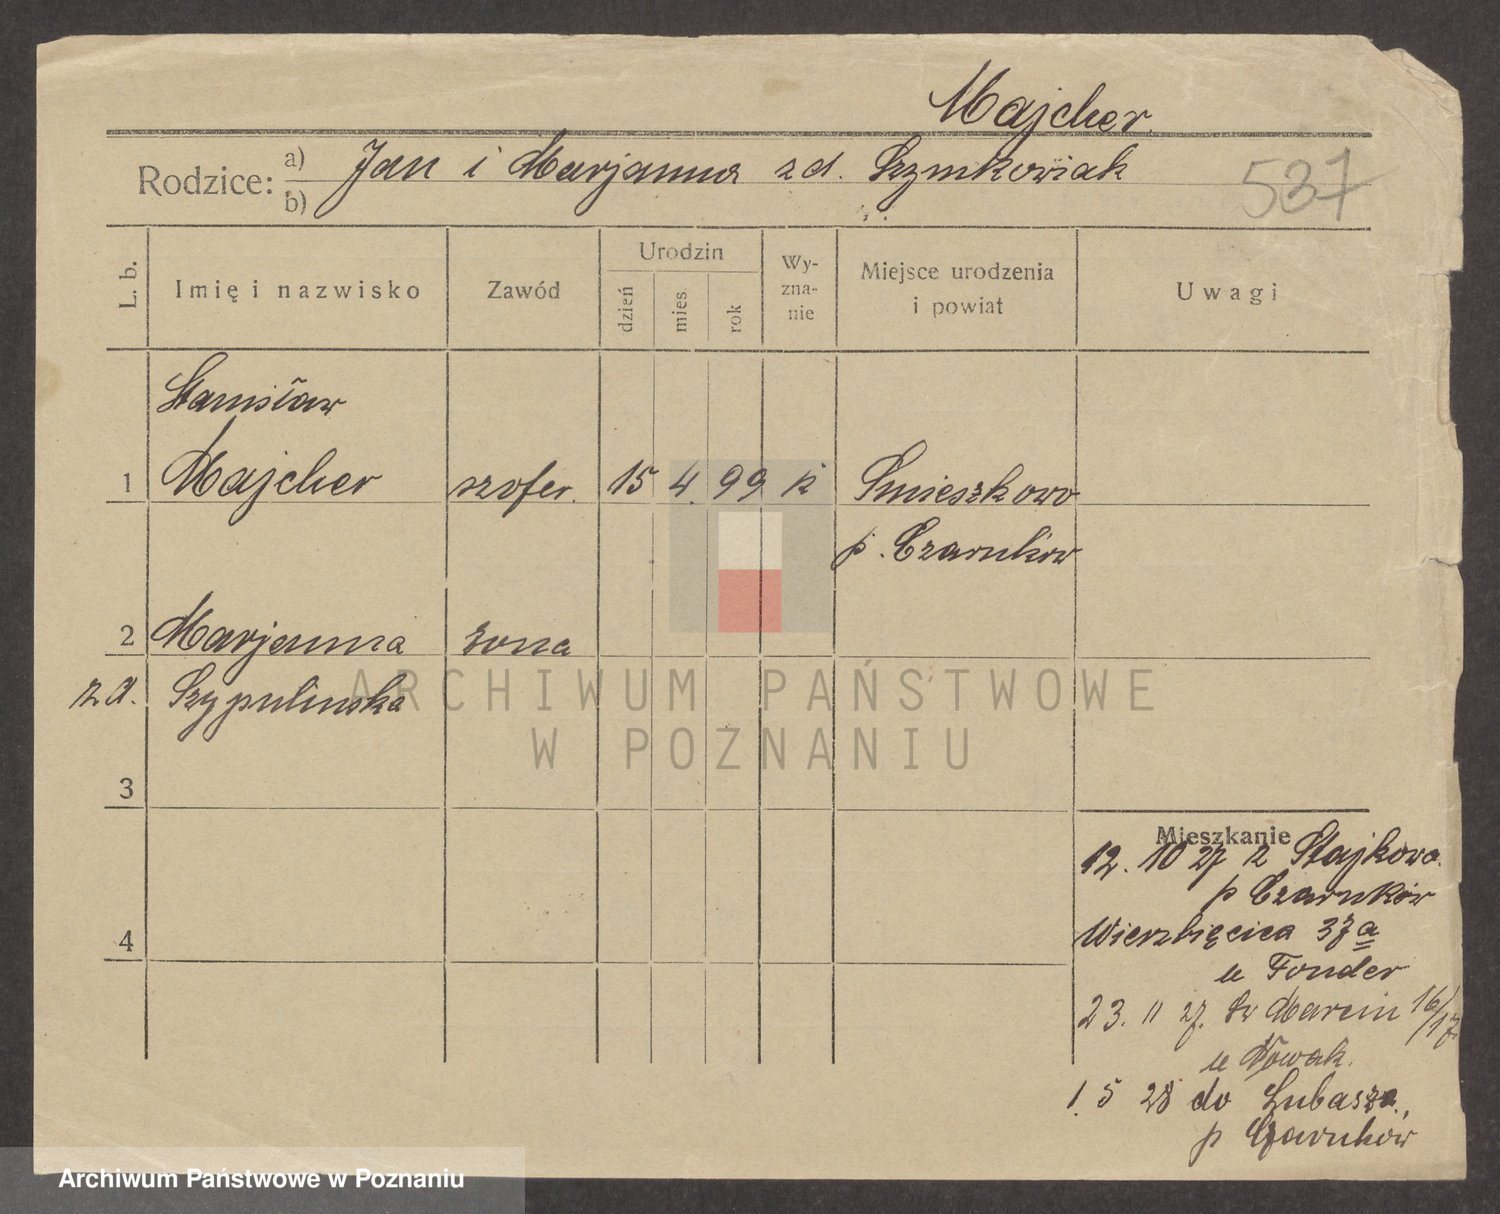 Majcher
Rodzice: a) Jan i Marjanna z d. Szymkowiak
b)
537
L. b.
Imię i nazwisko
Zawód
Urodzin
dzień
mies
rok
Wy-
zna-
nie
Miejsce urodzenia
i powiat
Uwagi
Stanisław
1 Majcher szofer. 15 4. 99 k Śmieszkowo
p. Czarnków
2 Marjanna żona
z d. Szypulinska
3
Mieszkanie
12. 10 27 z Stajkowo.
p Czarnków
4
Wierzbięcice 37a
u Fonder
23. 11 27. Św Marcin 16/17
u Nowak.
1. 5 28 do Lubasza,
p Czarnków
ARCHIWUM PAŃSTWOWE
W POZNANIU
Archiwum Państwowe w Poznaniu